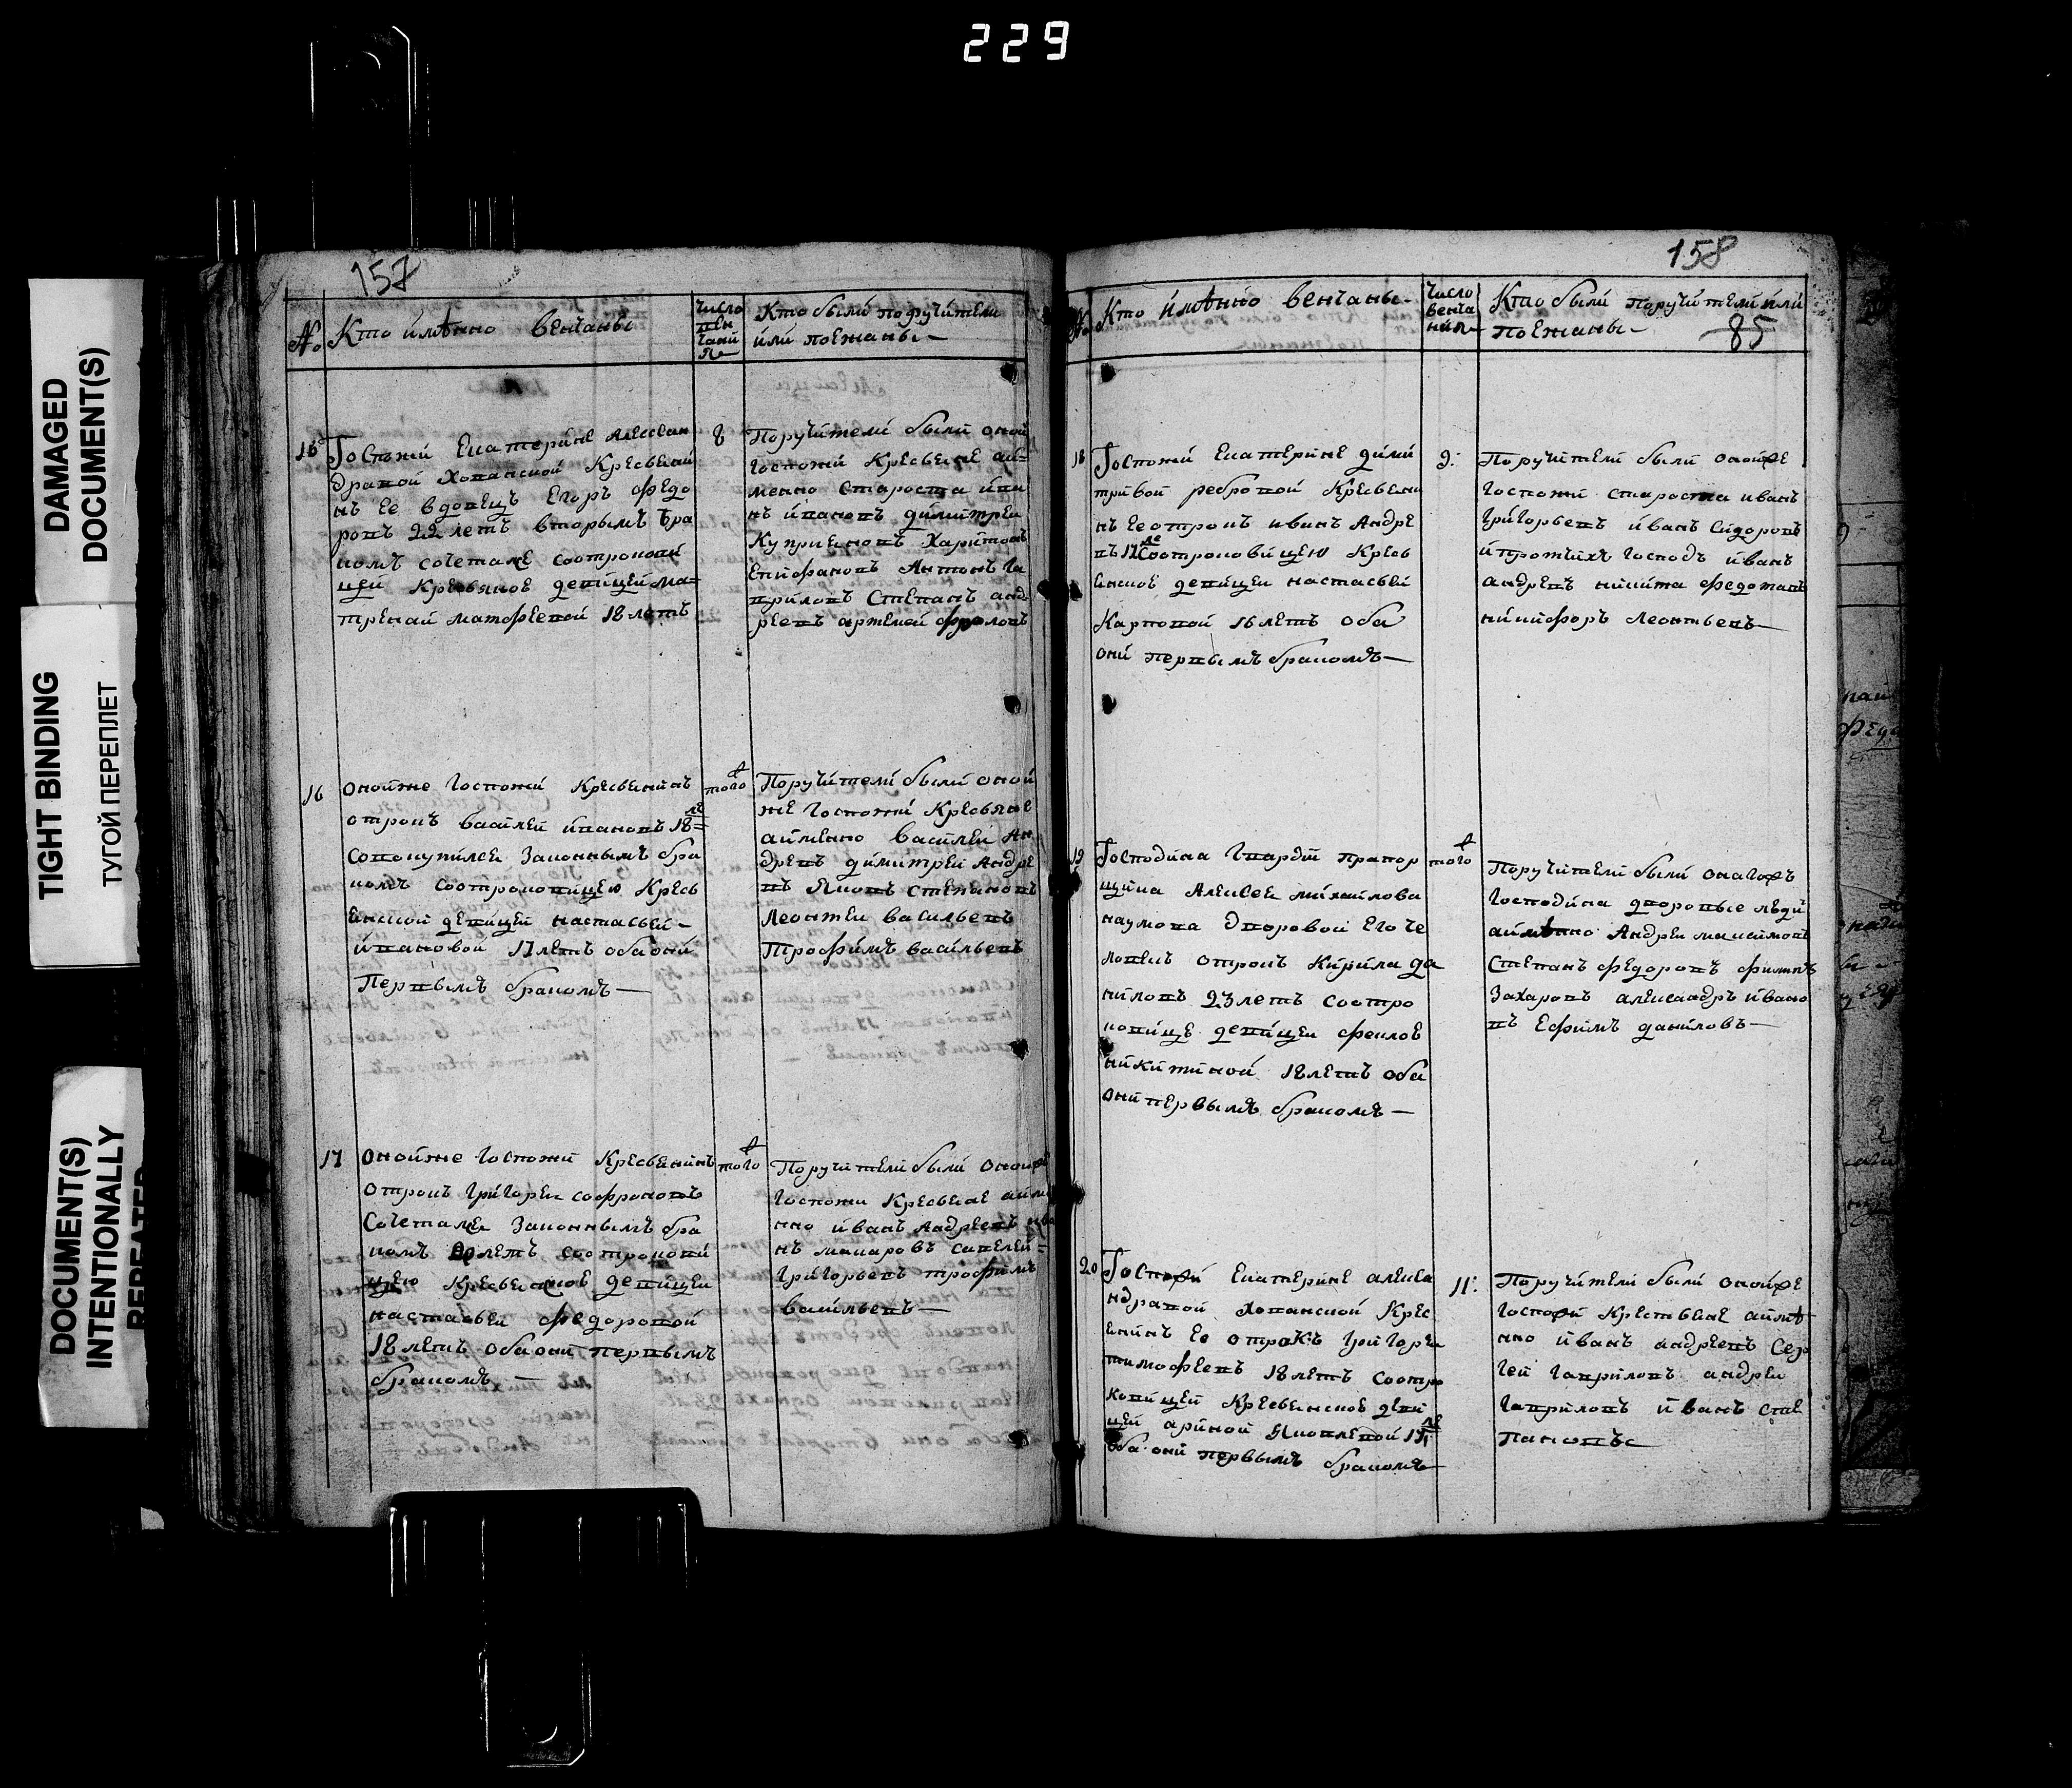 229
DAMAGED
DOCUMENT(S)
TIGHT BINDING
ТУГОЙ ПЕРЕПЛЕТ
DOCUMENT(S)
INTENTIONALLY
REPEATED
157
№ Кто имѣнно венчаны
число
вен
чани
я
Кто были поручители
или поезжаны
15
Госпожи Екатерине Алексан
дравой Хованской Кресьени
нъ ее вдовец Егоръ Федо
ровъ 22 летъ вторымъ бра
комъ сочетале соотрокови
цей Кресьяское девицей ма=
треной матфеевой 18 летъ
8
Поручители были оной
госпожи Кресьене аи=
менно староста ива
нъ ивановъ димитреи
Куприяновъ Харитонъ
Епифановъ Антонъ га
вриловъ Степанъ анд
реевъ артемей фроловъ
16
Онойже госпожи Кресьенинъ
отрокъ василей ивановъ 18 ле
совокупилсе законнымъ бра
комъ соотроковицею Кресь
енской девицей настасьей
ивановой 17 летъ оба они
первымъ бракомъ
того
Поручители были оной
же госпожи Кресьяне
аименно василеи Ан
древъ димитреи Андре
въ Яковъ степановъ
Леонтеи васильевъ
Трофимъ васильевъ
17
Онойже госпожи Кресьенинъ
отрокъ григореи софроновъ
сочетале законнымъ бра
комъ 20 летъ соотрокови
цею Кресьенское девицеи
настасьеи федоровой
18 летъ оба они первымъ
бракомъ
того
Поручители были онойже
госпожи Кресьене аиме
нно иванъ Андреевъ ива
нъ макаровъ савелеи
григорьевъ трофимъ
васильевъ
158
№ Кто имѣнно венчаны
число
венча
ния
Кто были поручители или
поезжаны
85
18
Госпожи Екатерине дими
тривой ребровой Кресьени
нъ ее отрокъ иванъ Андре
въ 17 ле соотроковицею Кресь
енское девицеи настасьеи
Карповой 16 летъ оба
они первымъ бракомъ
9:
Поручители были онойже
госпожи староста иванъ
григорьевъ иванъ Сидоровъ
и протчихъ господъ иванъ
андревъ никита федотавъ
никифоръ Леонтьевъ
19
Господина гвардии прапор
щика Алексея михайлова
наумова дворовой его че
ловекъ отрокъ Кирила да
ниловъ 23 летъ соотро
ковице девицеи феклое
никитиной 18 летъ оба
они первымъ бракомъ
того
Поручители были онагожъ
господина дворовые люди
аимѣнно Андреи максимовъ
Степанъ федоровъ филипъ
Захаровъ александръ ивано
въ Ефимъ даниловъ
20
Госпожи Екатерине алекса
ндравой хованской Крес
енинъ ее отрокъ григореи
тимофеевъ 18 летъ соотро
ковицей Кресьенское деви
цей ариной Яковлевой 17 ле
оба они первымъ бракомъ
11:
Поручители были онойже
госпожи Крестьене аимѣ
нно иванъ андреевъ Сер
гей гавриловъ андреи
гавриловъ иванъ сте
пановъ